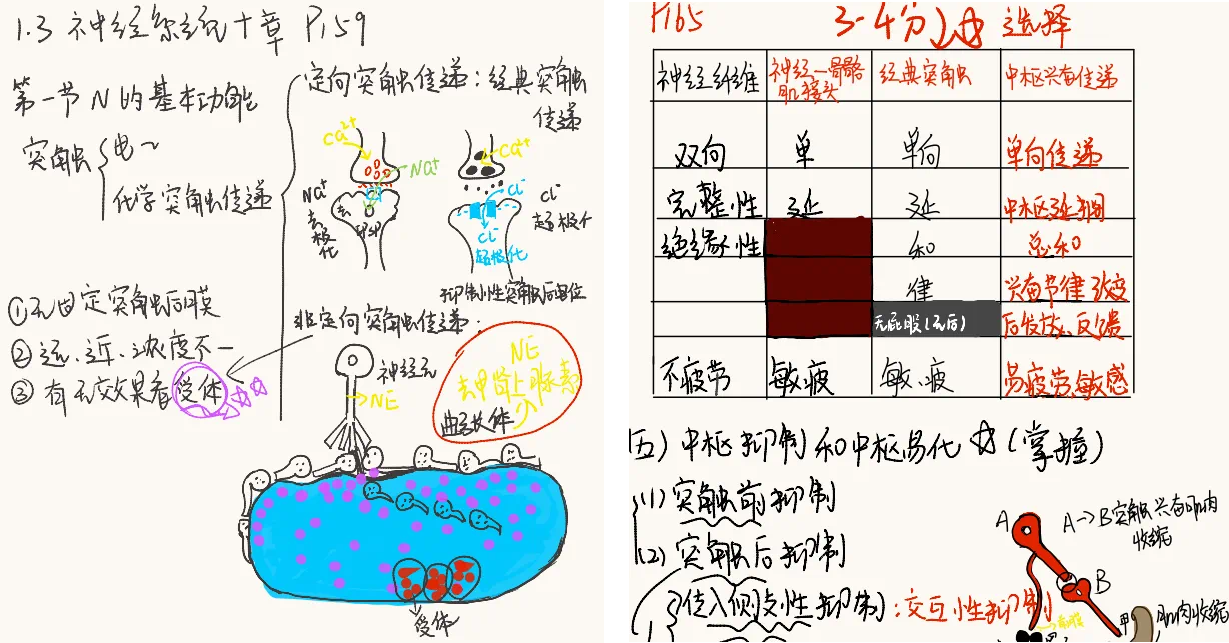 1.3 神经系统十章 P159
第一节 N的基本功能
突触 电~
化学突触传递
①无固定突触后膜
②远、近、浓度不一
③有无效果看受体
定向突触传递：经典突触传递
Ca²⁺
Na⁺
Na⁺
去极化
去
EPSP
Ca²⁺
Cl⁻
Cl⁻
超极化
Cl⁻
超极化
抑制性突触后电位
非定向突触传递：
神经元
NE
NE
去甲肾上腺素
曲张体
受体
P165 3-4分 选择
神经纤维 神经-骨骼肌接头 经典突触 中枢兴奋传递
双向 单 单向 单向传递
完整性 延 延 中枢延搁
绝缘性 和 总和
律 兴奋节律改变
无屁股(无后) 后发放、反馈
不疲劳 敏疲 敏、疲 易疲劳、敏感
(五)中枢抑制和中枢易化 (掌握)
(1)突触前抑制
(2)突触后抑制
传入侧支性抑制：交互性抑制
A
A→B突触兴奋肌肉收缩
B
甲
肌肉收缩